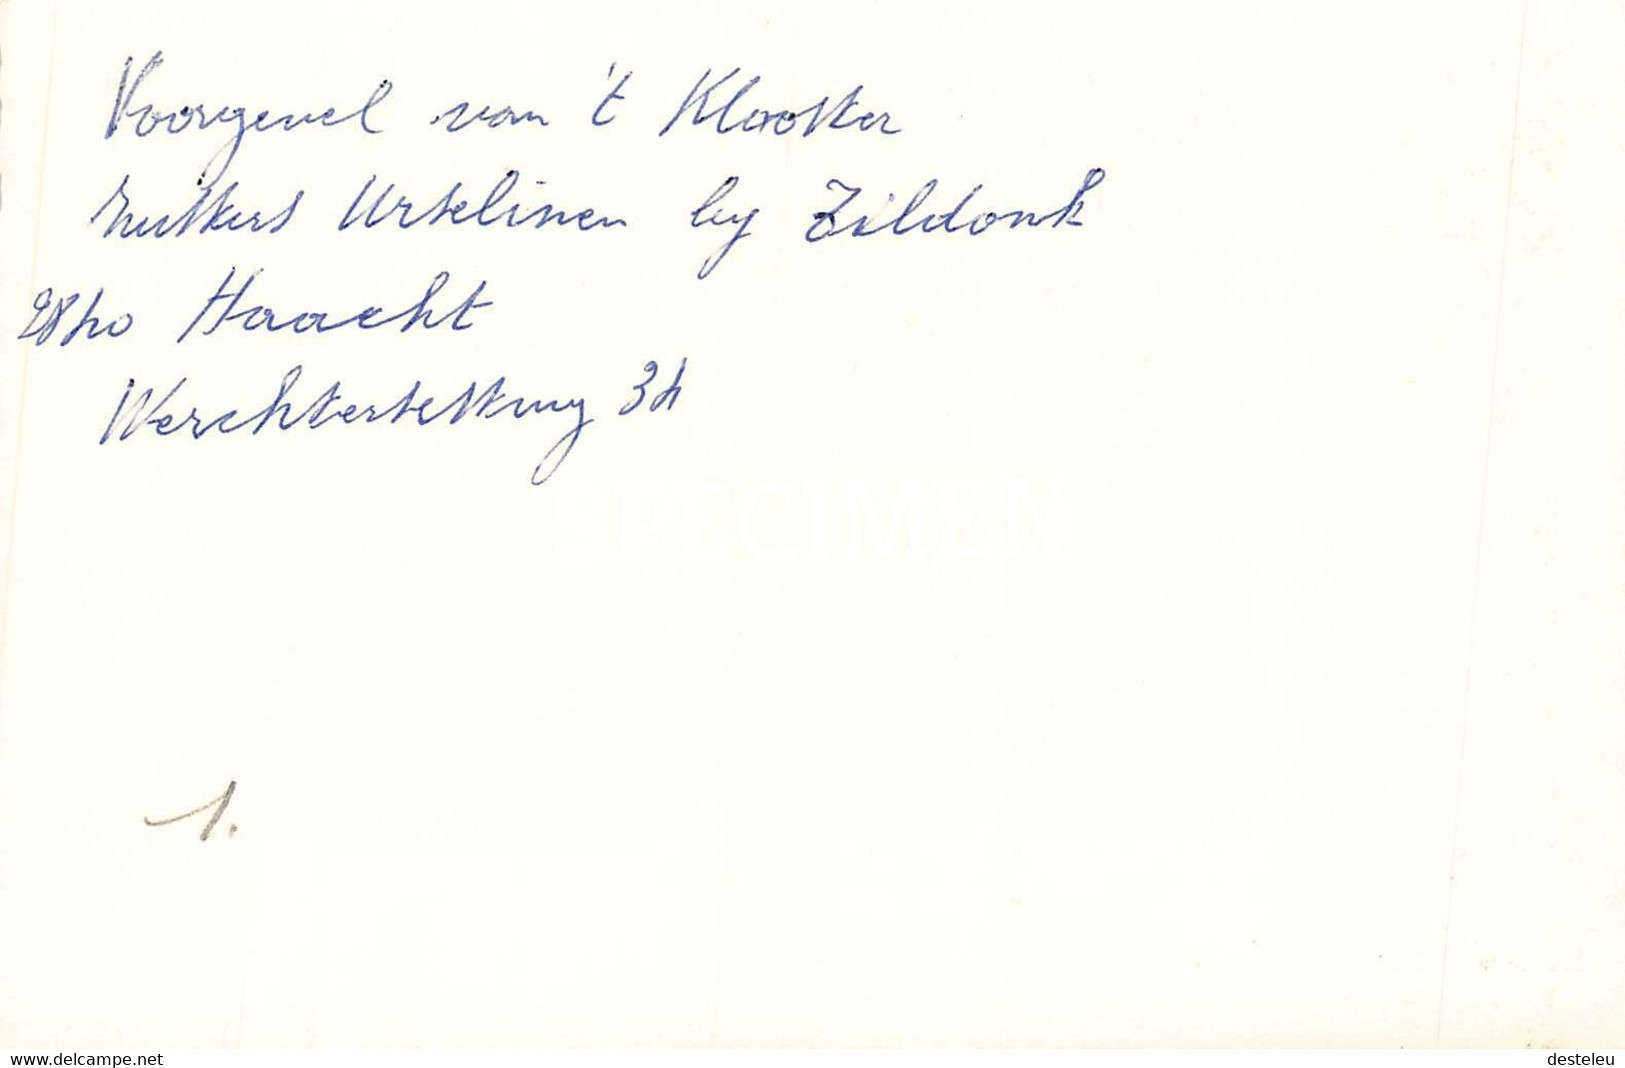 Voorgevel van 't Klooster
zusters Urselinen by Tildonk
2840 Haacht
Werchtersestwg 34
SPECIMEN
1.
www.delcampe.net
desteleu